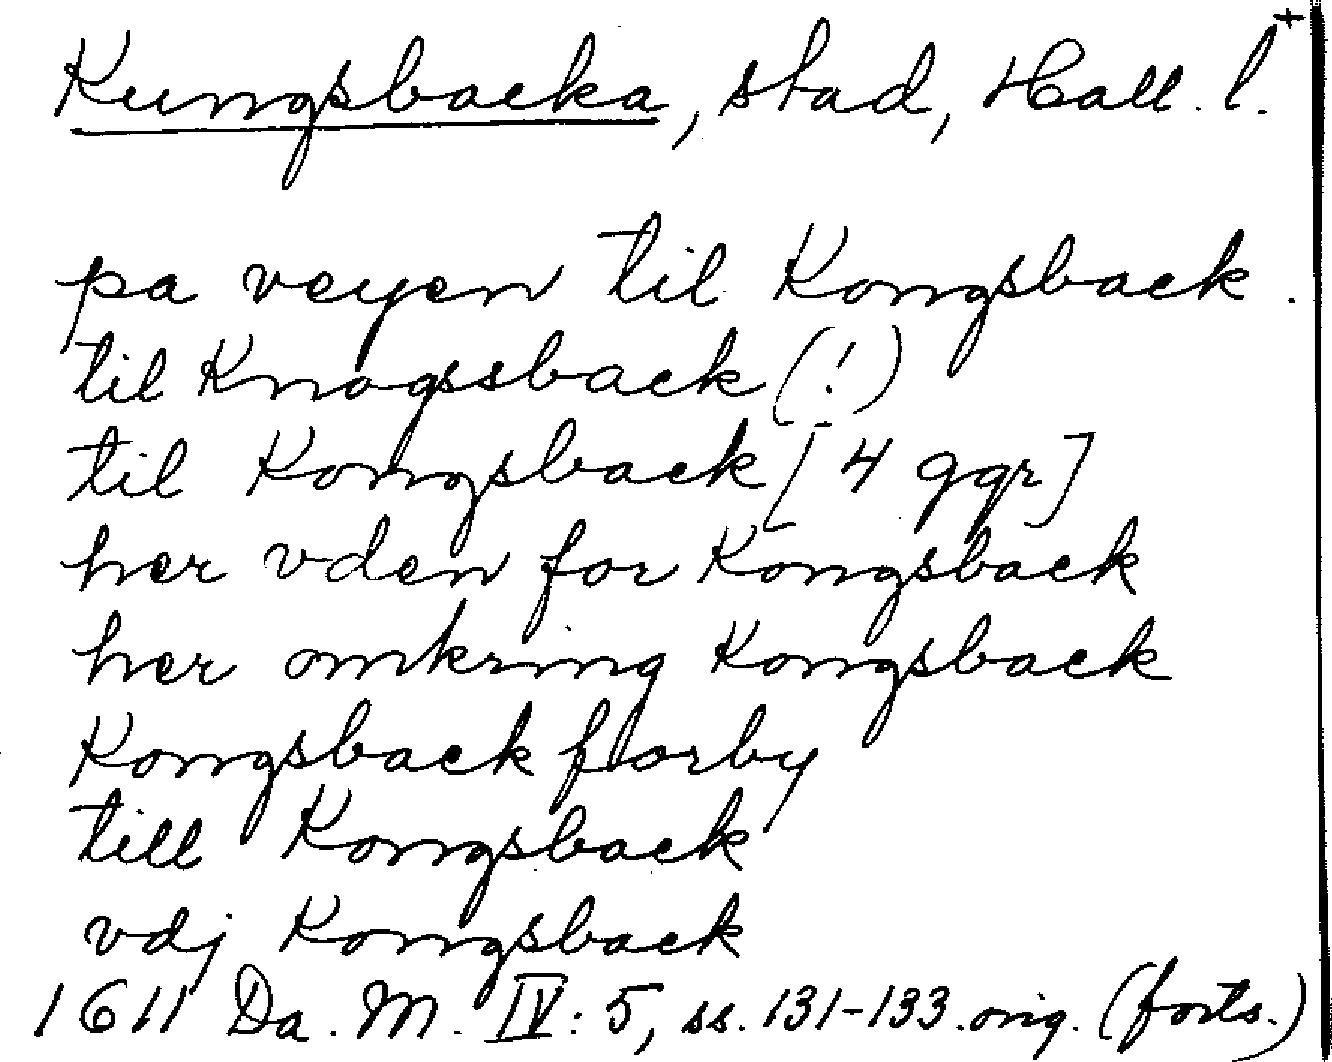 Kungsbacka, stad, Hall. l.+
pa veyen til Kongsback.
til Knogssback (!)
til Kongsback [4 ggr]
her vden for Kongsback
her omkring Kongsback
Kongsback forby
till Kongsback
vdj Kongsback
1611 Da. M. IV: 5, ss. 131-133. orig. (forts.)